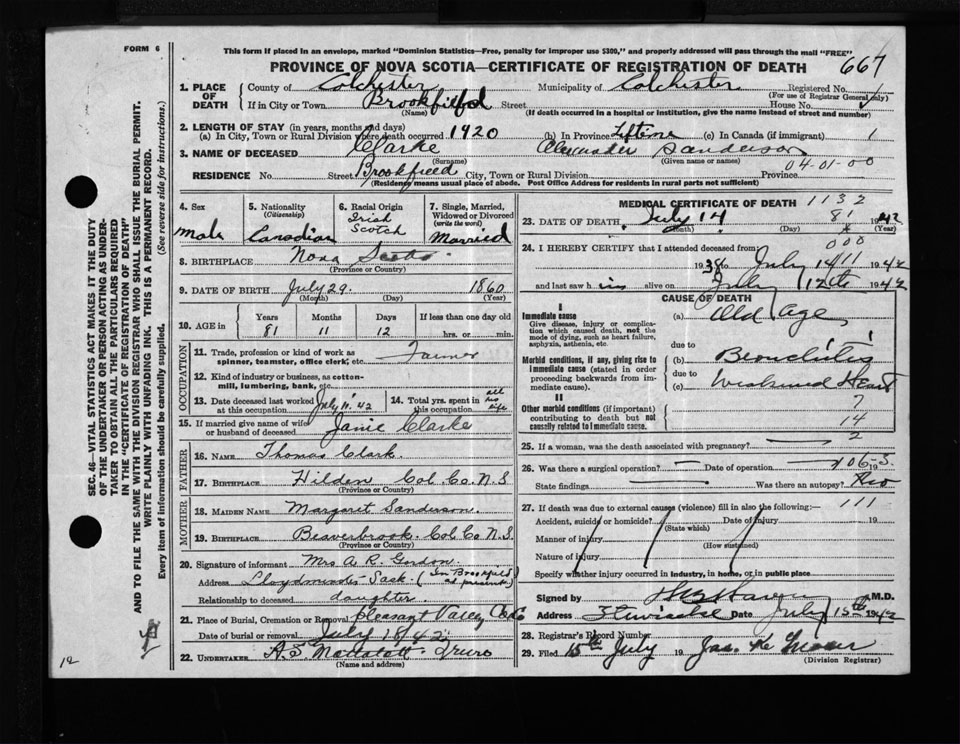 FORM 6
This form if placed in an envelope, marked "Dominion Statistics—Free, penalty for improper use $300," and properly addressed will pass through the mail "FREE"
PROVINCE OF NOVA SCOTIA—CERTIFICATE OF REGISTRATION OF DEATH 667
1. PLACE OF DEATH County of Colchester Municipality of Colchester Registered No.
(For use of Registrar General only)
If in City or Town Brookfield Street House No.
(Name) (If death occurred in a hospital or institution, give the name instead of street and number)
2. LENGTH OF STAY (in years, months and days)
(a) In City, Town or Rural Division where death occurred 1920 (b) In Province Lifetime (c) In Canada (if immigrant) 1
3. NAME OF DECEASED Clarke Alexander Sanderson
(Surname) (Given name or names)
04-01-00
RESIDENCE No. Street Brookfield City, Town or Rural Division Province
(Residence means usual place of abode. Post Office Address for residents in rural parts not sufficient)
4. Sex Male
5. Nationality (Citizenship) Canadian
6. Racial Origin Irish Scotch
7. Single, Married, Widowed or Divorced (write the word) Married
8. BIRTHPLACE Nova Scotia
(Province or Country)
9. DATE OF BIRTH July 29 1860
(Month) (Day) (Year)
10. AGE in Years Months Days If less than one day old
81 11 12 hrs. or min.
OCCUPATION
11. Trade, profession or kind of work as spinner, teamster, office clerk, etc. Farmer
12. Kind of industry or business, as cotton-mill, lumbering, bank, etc.
13. Date deceased last worked at this occupation July 11 '42
14. Total yrs. spent in this occupation all his life
15. If married give name of wife or husband of deceased Janie Clarke
FATHER
16. NAME Thomas Clark
17. BIRTHPLACE Hilden Col. Co. N.S
(Province or Country)
MOTHER
18. MAIDEN NAME Margaret Sanderson
19. BIRTHPLACE Beaverbrook Col. Co N.S
(Province or Country)
20. Signature of informant Mrs A. R. Gordon
Address Lloydminster Sask (In Brookfield at present)
Relationship to deceased daughter
21. Place of Burial, Cremation or Removal Pleasant Valley
Date of burial or removal July 15 42
22. UNDERTAKER Truro
(Name and address)
MEDICAL CERTIFICATE OF DEATH 1132
23. DATE OF DEATH July 14 81 1942
(Month) (Day) (Year)
24. I HEREBY CERTIFY that I attended deceased from: 000
1938 to July 14 1942
and last saw him alive on July 12th 1942
CAUSE OF DEATH
I
Immediate cause
Give disease, injury or complication which caused death, not the mode of dying, such as heart failure, asphyxia, asthenia, etc.
(a) Old Age
due to
Morbid conditions, if any, giving rise to immediate cause (stated in order proceeding backwards from immediate cause).
(b) Bronchitis
due to
(c) Weakened Heart
II
Other morbid conditions (if important) contributing to death but not causally related to immediate cause.
7
14
2
25. If a woman, was the death associated with pregnancy?
26. Was there a surgical operation? Date of operation 19
State findings Was there an autopsy? No
27. If death was due to external causes (violence) fill in also the following:— 111
Accident, suicide or homicide? Date of injury 19
(State which)
Manner of injury
(How sustained)
Nature of injury
Specify whether injury occurred in industry, in home, or in public place
Signed by M.D.
Address Stewiacke Date July 15th 1942
28. Registrar's Record Number
29. Filed 15th July 19
(Division Registrar)
SEC. 46—VITAL STATISTICS ACT MAKES IT THE DUTY OF THE UNDERTAKER OR PERSON ACTING AS UNDERTAKER TO OBTAIN ALL THE PARTICULARS REQUIRED IN THE "CERTIFICATE OF REGISTRATION OF DEATH" AND TO FILE THE SAME WITH THE DIVISION REGISTRAR WHO SHALL ISSUE THE BURIAL PERMIT.
WRITE PLAINLY WITH UNFADING INK. THIS IS A PERMANENT RECORD.
Every item of information should be carefully supplied. (See reverse side for instructions.)
12